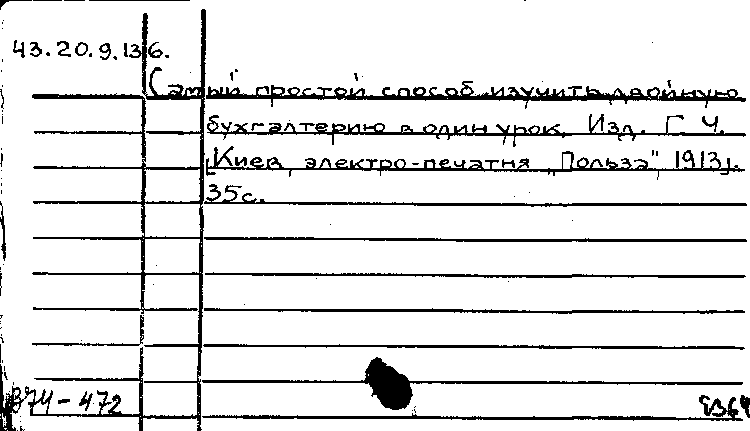 43.20.9.136.
Самый простой способ изучить двойную
бухгалтерию в один урок. Изд. Г. Ч.
[Киев, электро-печатня „Польза", 1913].
35с.
В74-472